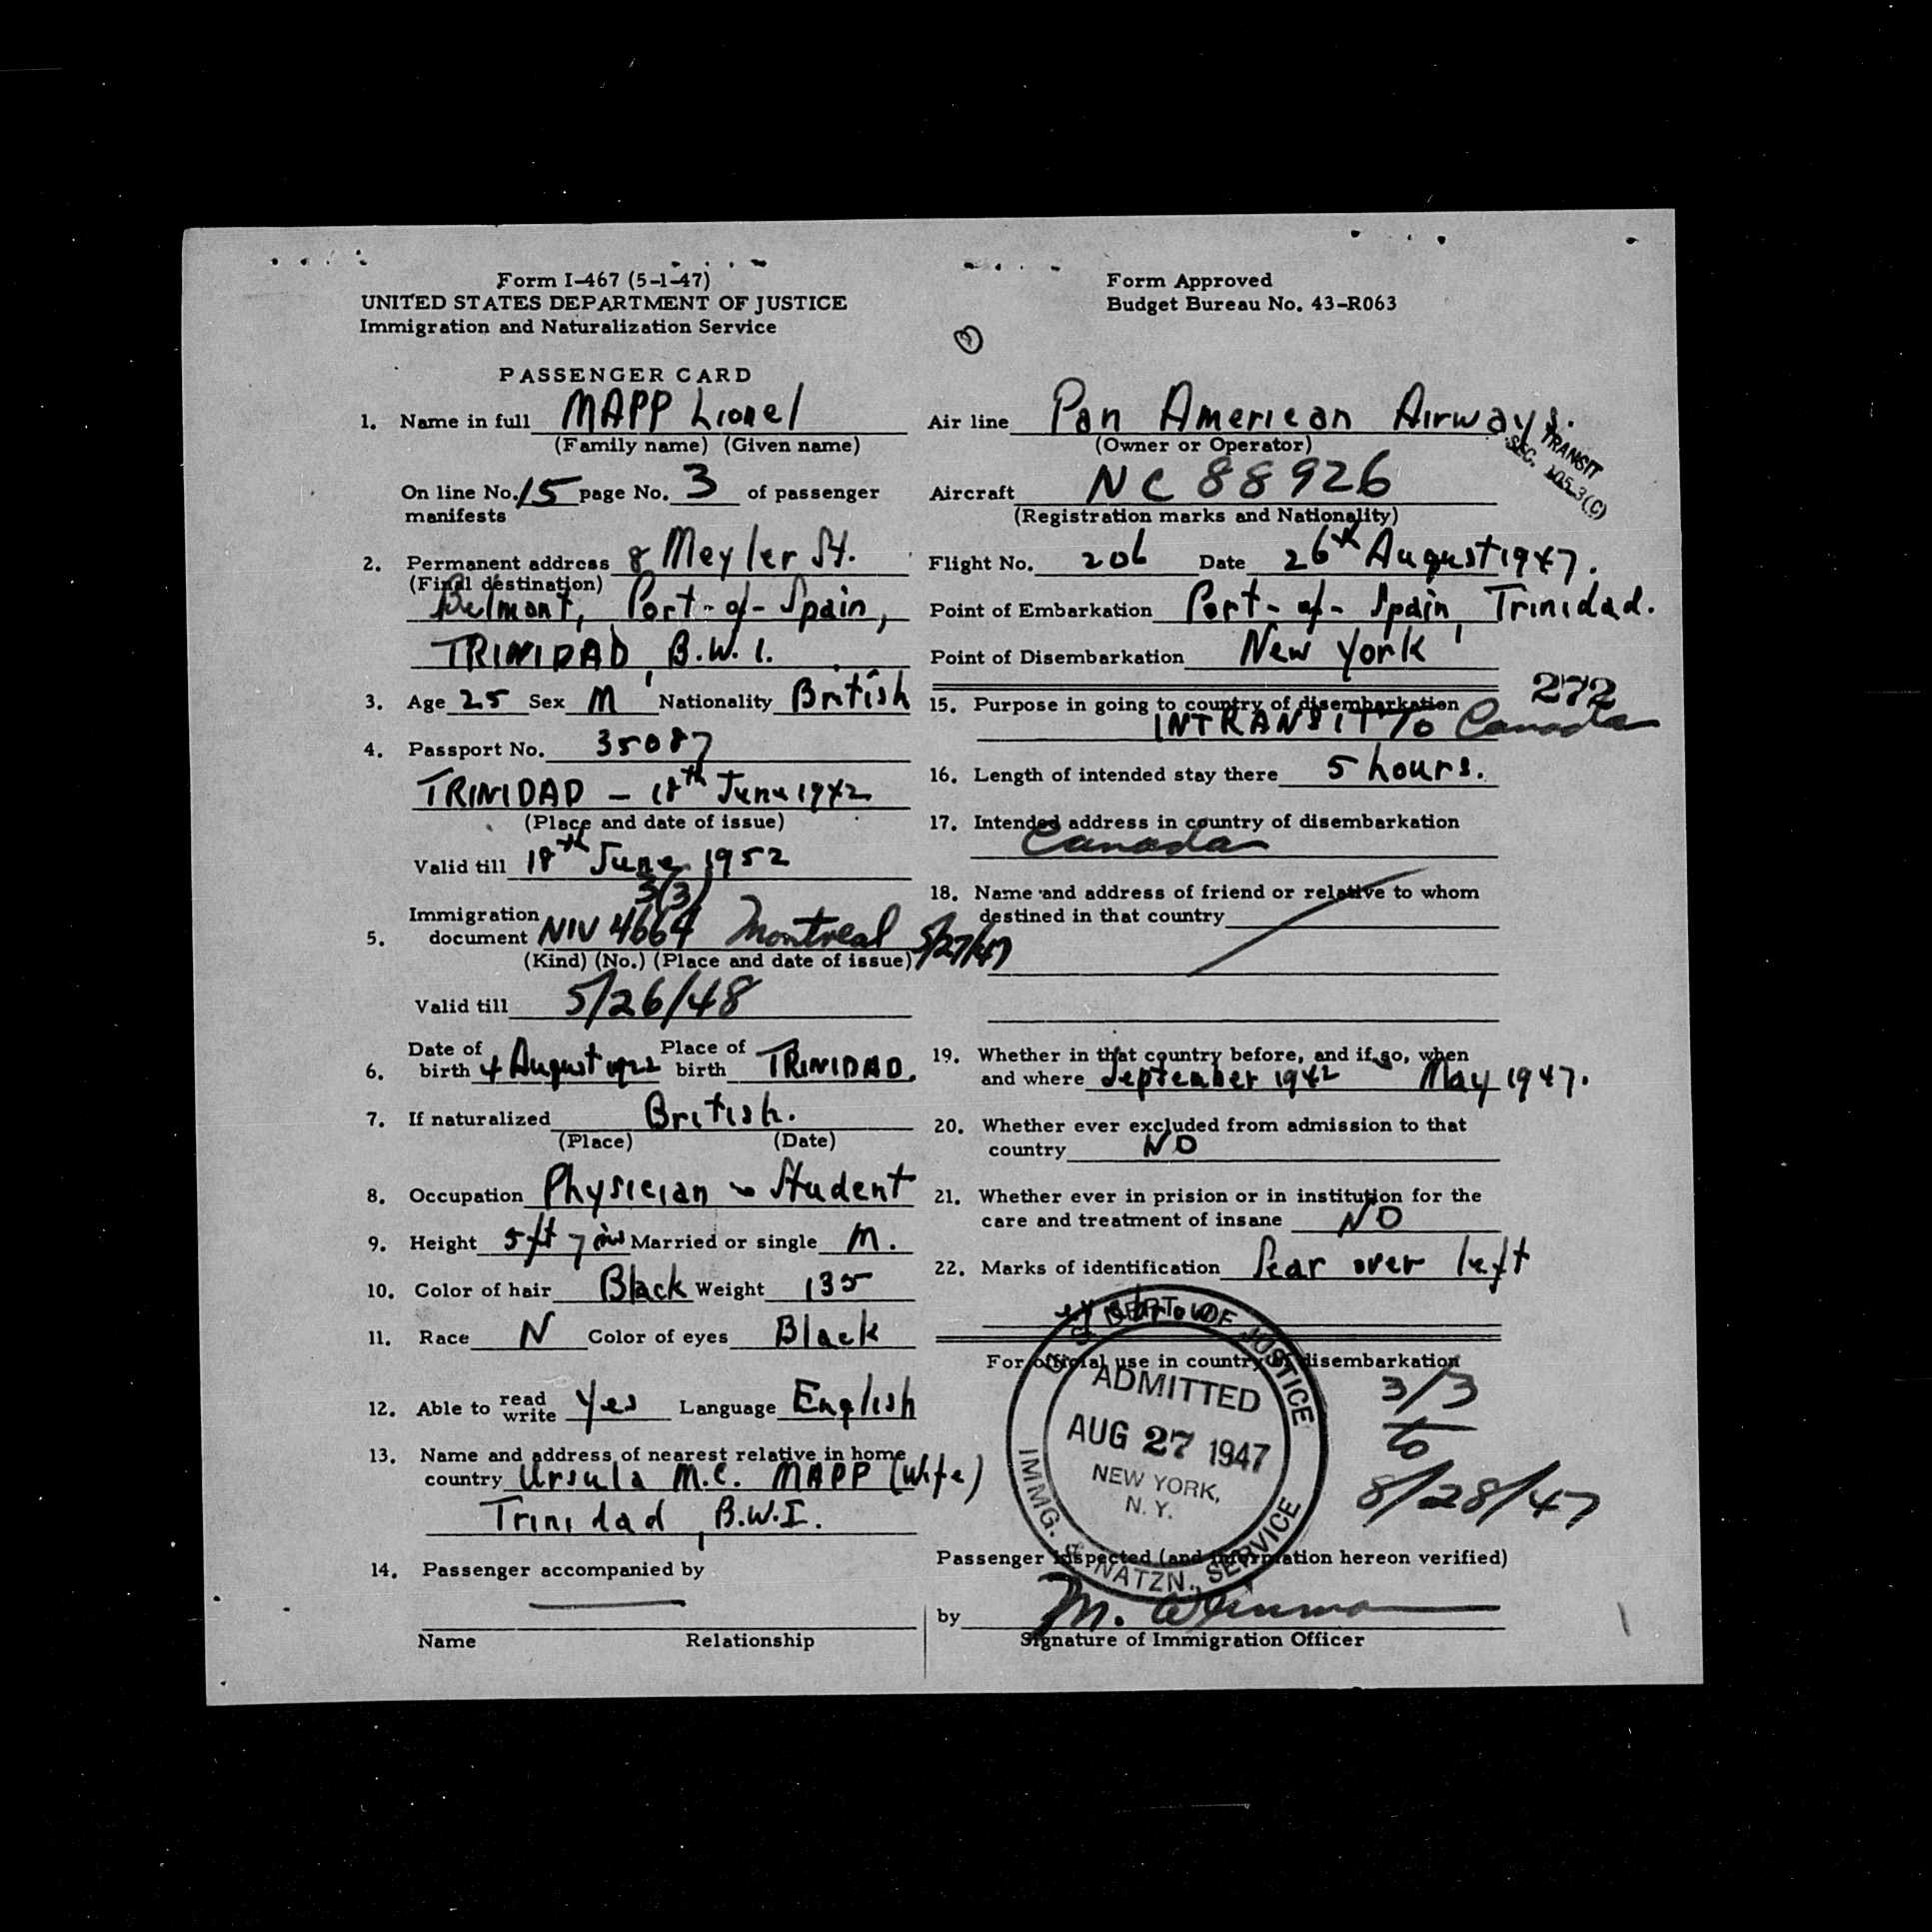 Form I-467 (5-1-47)
UNITED STATES DEPARTMENT OF JUSTICE
Immigration and Naturalization Service
PASSENGER CARD
1. Name in full MAPP Lionel
(Family name) (Given name)
On line No. 15 page No. 3 of passenger
manifests
2. Permanent address 8 Meyler St.
(Final destination)
Belmont, Port-of-Spain,
TRINIDAD, B.W.I.
3. Age 25 Sex M Nationality British
4. Passport No. 35087
TRINIDAD – 18th June 1942
(Place and date of issue)
Valid till 18th June 1952
3(3)
Immigration
5. document NIV 4664 Montreal 5/27/47
(Kind) (No.) (Place and date of issue)
Valid till 5/26/48
6. Date of birth 4 August 1922 Place of birth TRINIDAD.
7. If naturalized British.
(Place) (Date)
8. Occupation Physician Student
9. Height 5ft 7 ins Married or single M.
10. Color of hair Black Weight 135
11. Race N Color of eyes Black
12. Able to read write Yes Language English
13. Name and address of nearest relative in home
country Ursula M.C. MAPP (Wife)
Trinidad, B.W.I.
14. Passenger accompanied by
Name Relationship
Form Approved
Budget Bureau No. 43-R063
Air line Pan American Airways.
(Owner or Operator)
TRANSIT
SEC. 105.3(C)
Aircraft NC 88926
(Registration marks and Nationality)
Flight No. 206 Date 26th August 1947.
Point of Embarkation Port-of-Spain, Trinidad.
Point of Disembarkation New York
272
15. Purpose in going to country of disembarkation
INTRANSIT To Canada
16. Length of intended stay there 5 hours.
17. Intended address in country of disembarkation
Canada
18. Name and address of friend or relative to whom
destined in that country
19. Whether in that country before, and if so, when
and where September 1942 May 1947.
20. Whether ever excluded from admission to that
country NO
21. Whether ever in prision or in institution for the
care and treatment of insane NO
22. Marks of identification Scar over left
eyebrow
For official use in country of disembarkation
U.S. DEPT. OF JUSTICE
ADMITTED
AUG 27 1947
NEW YORK,
N. Y.
IMMG. & NATZN. SERVICE
3/3
to
8/28/47
Passenger inspected (and information hereon verified)
by M.
Signature of Immigration Officer